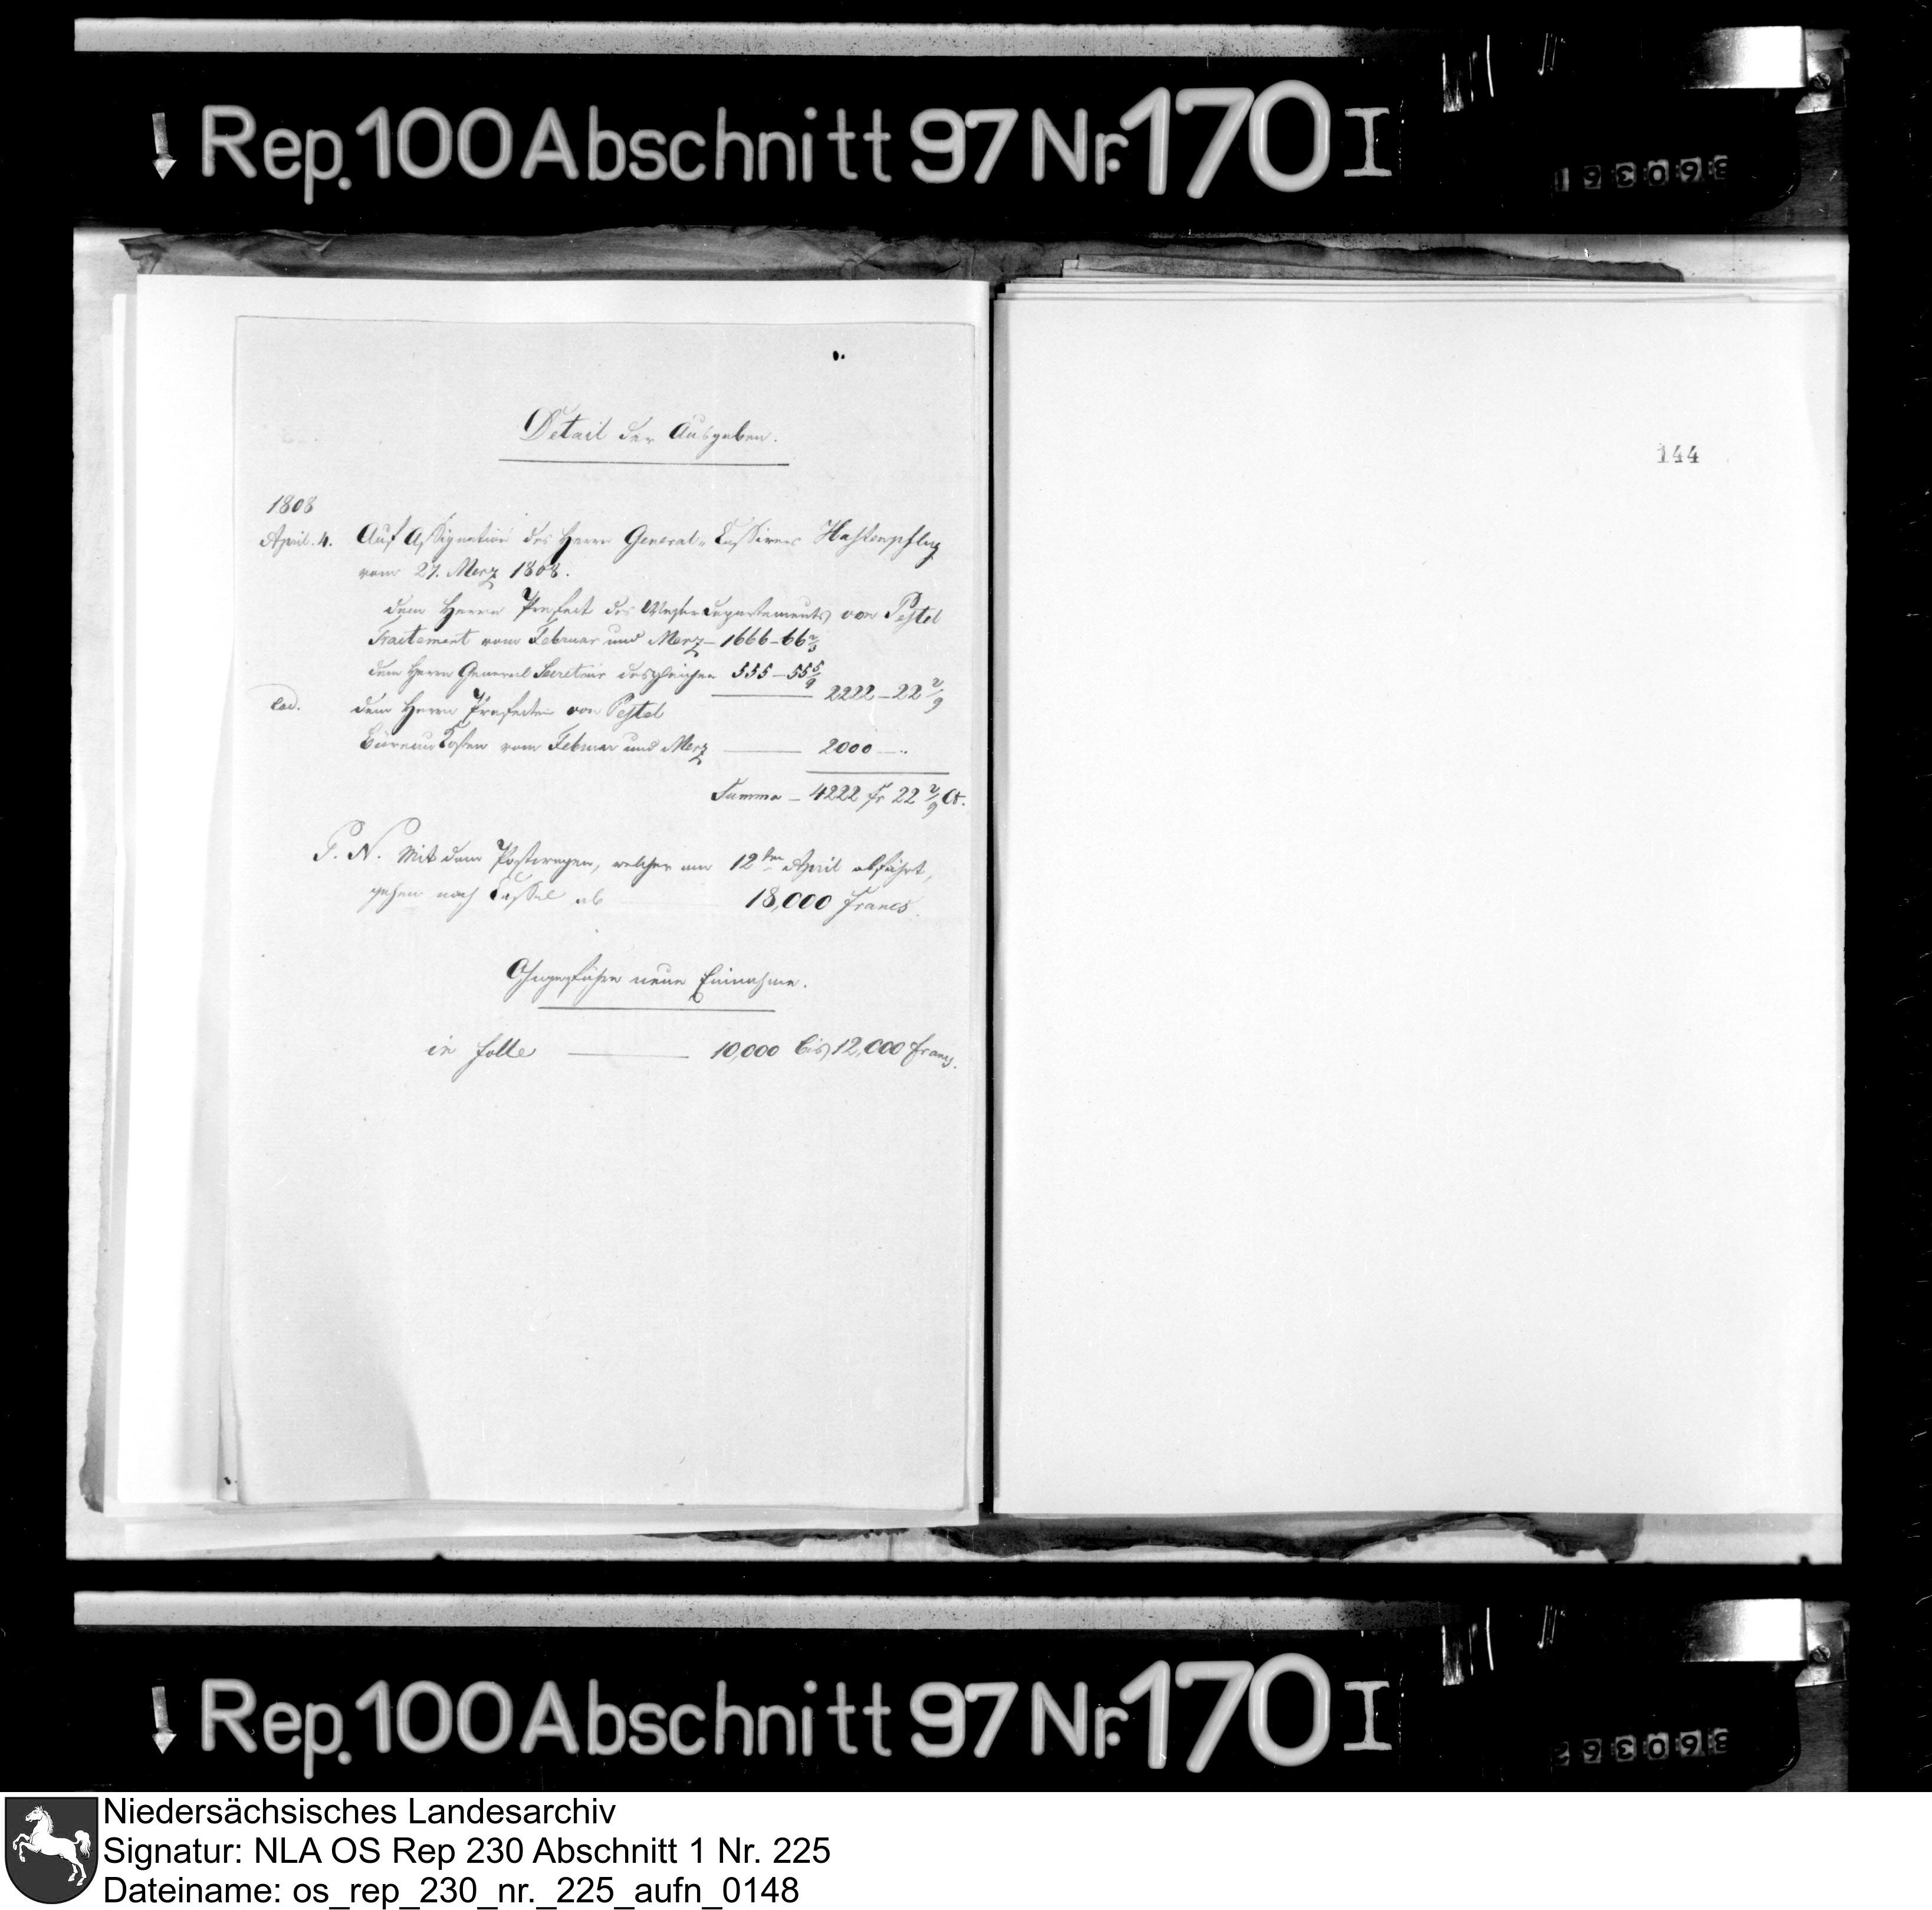 Rep. 100 Abschnitt 97 Nr. 170 I
Detail der Ausgaben.
1808
April. 4. Auf Assignation des Herrn General-Cassirers Hassenpflug
vom 27. Merz 1808.
dem Herrn Praefect des Weserdepartements von Pestel
Traitement vom Februar und Merz - 1666 - 66 2/3
dem Herrn General Secretair desgleichen 555 - 55 5/9
2222 - 22 2/9
eod. dem Herrn Praefecten von Pestel
Büreau Kosten vom Februar und Merz 2000 - .
Summa - 4222 fr 22 2/9 Ct.
P. N. Mit dem Postwagen, welcher am 12ten April abfährt,
gehen nach Cassel ab 18,000 Francs.
Ohngefähre neue Einnahme.
in 10,000 bis 12,000 Francs.
144
Rep. 100 Abschnitt 97 Nr. 170 I
Niedersächsisches Landesarchiv
Signatur: NLA OS Rep 230 Abschnitt 1 Nr. 225
Dateiname: os_rep_230_nr._225_aufn_0148